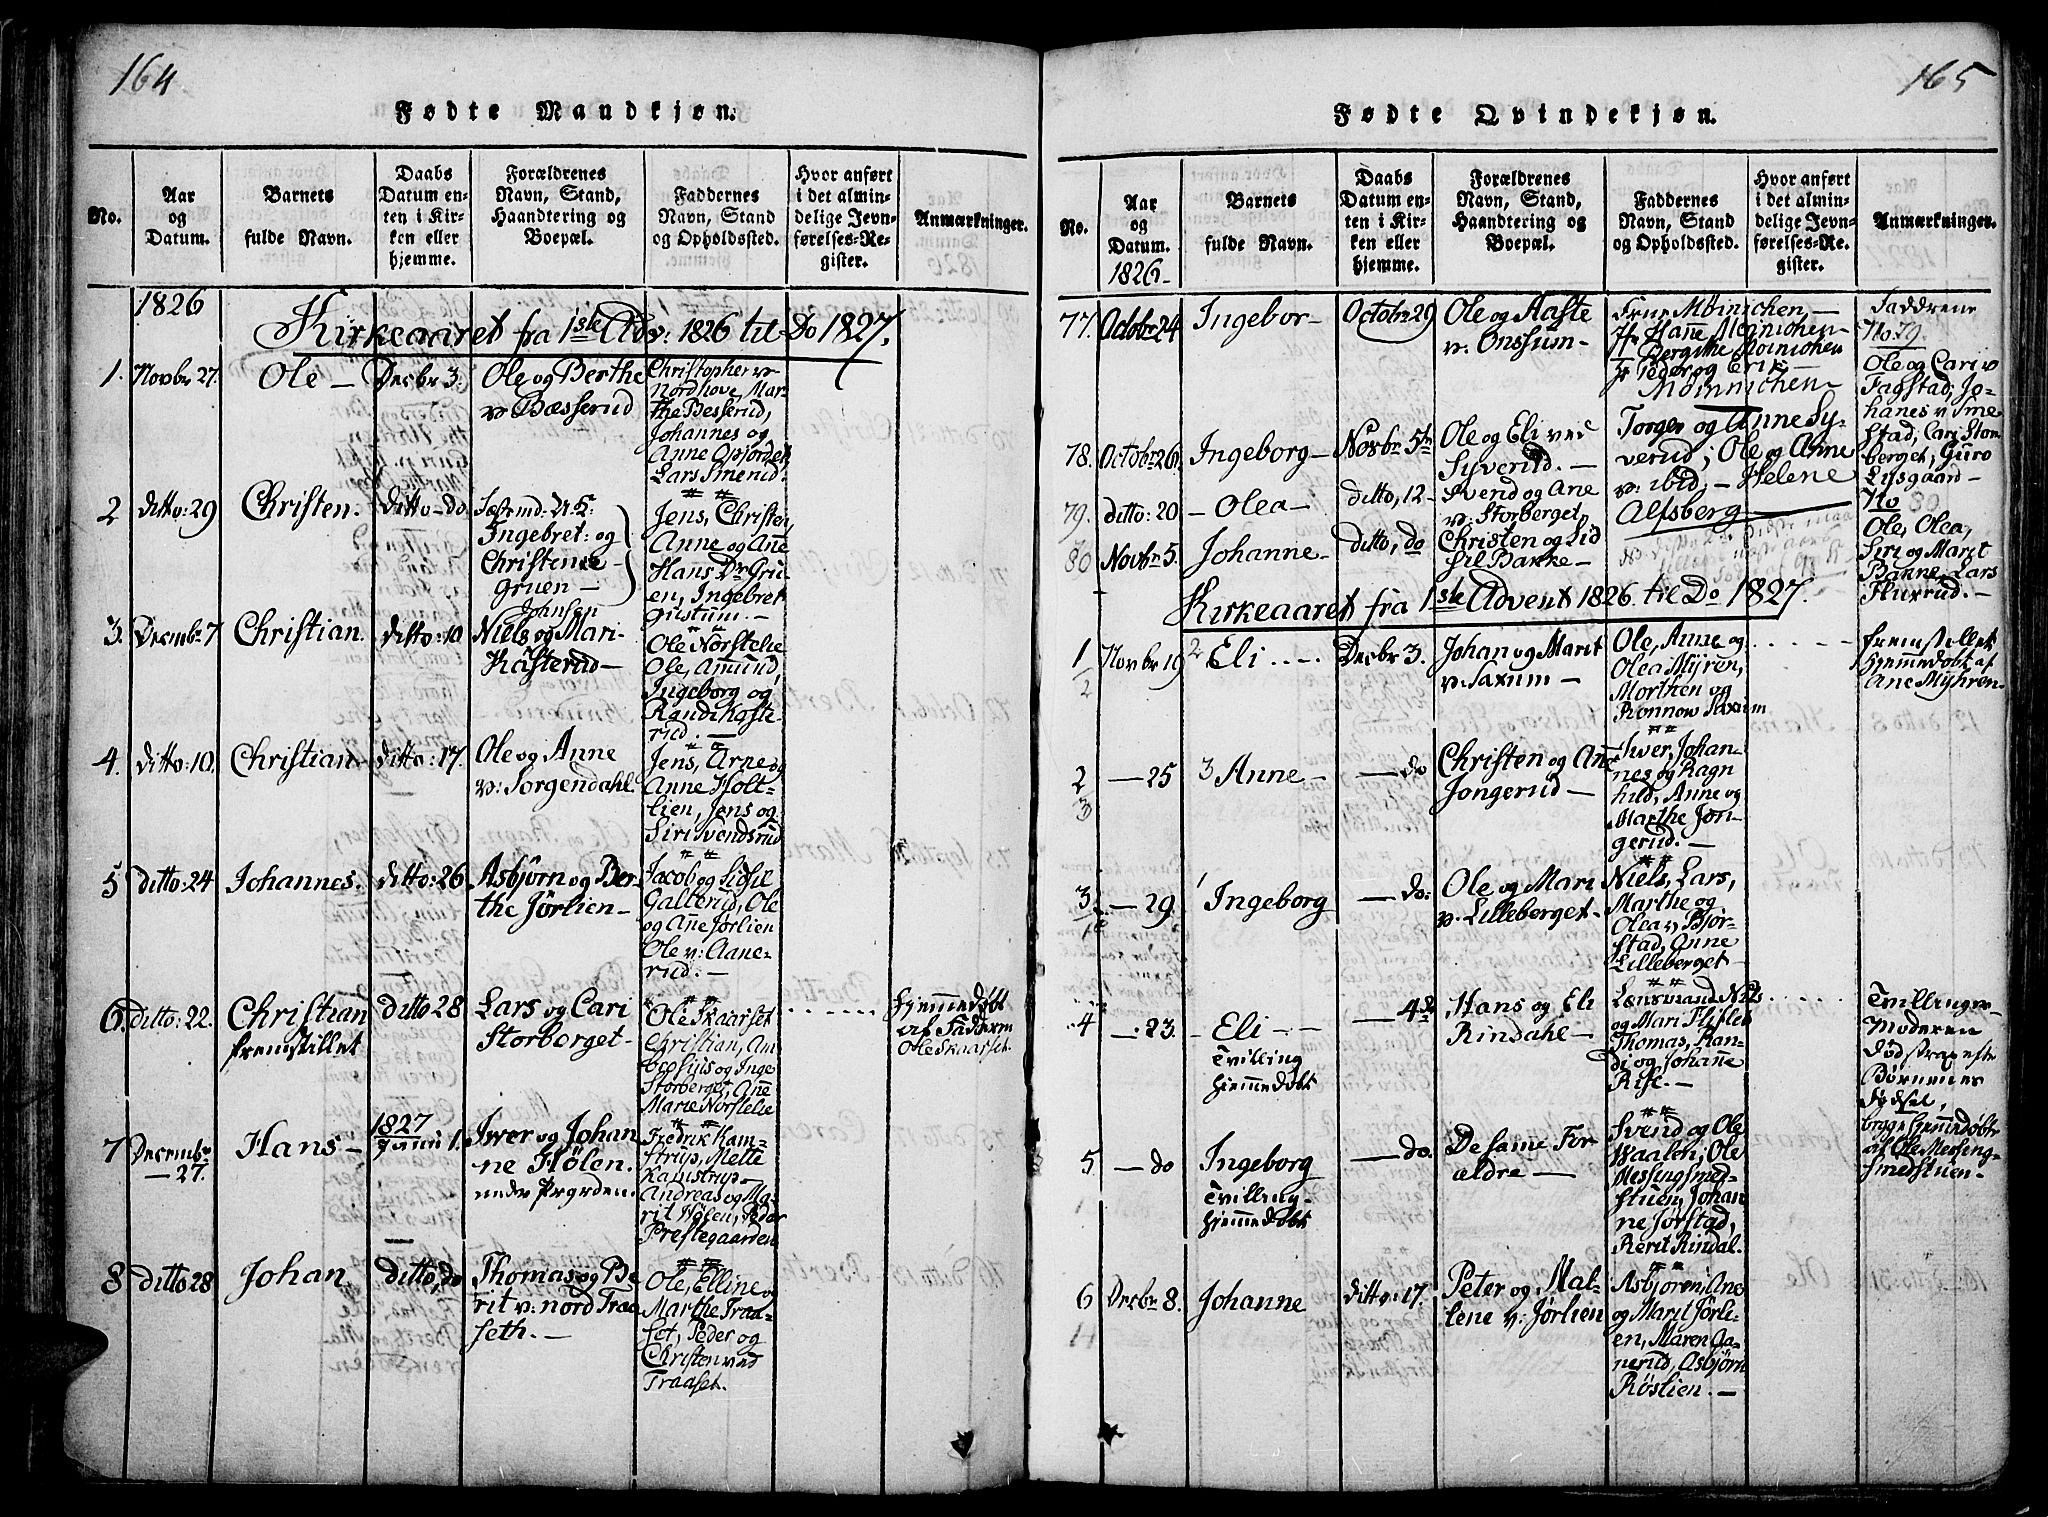 164
Fødte Mandkjøn.
No.
Aar
og
Datum.
Barnets
fulde Navn.
Daabs
Datum en-
ten i Kir-
ken eller
hjemme.
Forældrenes
Navn, Stand,
Haandtering og
Boepæl.
Faddernes
Navn, Stand
og Opholdssted.
Hvor anført
i det almin-
delige Jevn-
førelses-Re-
gister.
Anmærkninger.
1826
Kirkeaaret fra 1ste Adv: 1826 til Do 1827.
1. Novbr 27.
Ole
Decbr 3.
Ole og Berthe
v Bæsserud
Christopher v
Nordhove, Mar-
the Besserud,
Johannes og
Anne Opjordet
Lars Smerud.
2 ditto: 29
Christen.
Ditto do
Ingebret: og
Christense
Gruen
Jens, Christen,
Anne og Ane
Hans Dr Gru-
en, Ingebret
Gustum.
3. Decmbr 7
Christian.
ditto: 10
Johnsen
Niels og Mari
Kasterud
Ole Norstelie
Ole, Amund,
Ingeborg og
Randi Kaste-
rud.
4. ditto: 10.
Christian
ditto: 17.
Ole og Anne
v: Sorgendahl.
Jens, Arne og
Anne Holt-
lien, Jens og
Siri Svendsrud
5 ditto: 24
Johannes.
ditto: 26
Asbjørn og Ber-
the Jørlien
Jacob og Sidsil
Galterud, Ole
og Ane Jørlien
Ole v: Aane-
rud.
6. ditto: 22.
Christian
fremstillet
ditto 28
Lars og Cari
Storberget
Ole Skaarset
Christian, Am-
Storberget, Ane
Marie Norstelie
Hjemmedøbt
af Fadderen
Ole Skaarset.
7 Decembr
27.
Hans
1827
Janu 1.
Iver og Johan
ne Hølen.
under Prgrden.
Fredrik Kam-
strup, Mette
Kamstrup
Andreas og Ma-
rit Hølen, Peder
Prestegaarden
8 ditto 28
Johan
ditto, do
Thomas og Be
rit v: nord Traa
seth.
Ole, Elline og
Marthe Traa-
set, Peder og
Christen ved
Traaset.
165
Fødte Qvindekjøn.
No.
Aar
og
Datum.
1826
Barnets
fulde Navn.
Daabs
Datum en-
ten i Kir-
ken eller
hjemme.
Forældrenes
Navn, Stand,
Haandtering og
Boepæl.
Faddernes
Navn, Stand
og Opholdssted.
Hvor anført
i det almin-
delige Jevn-
førelses-Re-
gister.
Anmærkninger.
77. Octobr 24
Ingebor
Octobr 29
Ole og Aaste
v: Onssum
Frue Møinichen
Jfr Hanne Moinichen
Bergithe Moinichen
Peder og Erik
Møinnichen
Faddrene
No. 79.
Ole og Cari v
Fagstad, Jo-
hanes v Sme
stad, Cari Stor
berget, Guro
Lysgaard
78. Octobr 26
Ingeborg
Novbr 5te
Ole og Eli ved
Syverud.
Torger og Anne Sy-
verud, Ole og Anne
v: ibid. Helene
Alfsberg
79. ditto: 20
Olea
ditto, 12
Svend og Ane
v: Storberget,
80 Novbr 5.
Johanne
ditto, do
Christen og Sid
sil Bakke
No 80
Ole, Olea,
Siri og Marit
Bakke, Lars
Fluxrud.
Kirkeaaret fra 1ste Advent 1826 til Do 1827.
1/2 Novbr 19
2 Eli
Decbr 3.
Johan og Marit
v: Saxum
Ole, Anne og
Olea Myren,
Morthen og
Rønnow Saxum
fremstillet
hjemmedøbt af
Ane Myhren.
2/3 25
3 Anne
do
Christen og Ane
Jongerud
Iver, Johan-
nes og Ragn
hild, Anne og
Marthe Jon-
gerud.
3/1 29
1 Ingeborg
do:
Ole og Mari
v: Lilleberget
Niels, Lars,
Marthe og
Olea v Bjør-
stad, Anne
Lilleberget
4 23.
Eli
Tvilling
hjemmedøbt
4de
Hans og Eli
Rindahl
Lænsmand Nils
og Mari Fliflet
Thomas, Ran-
di og Johane
Rise.
Tvillinger
Moderen
død strax efter
Børnenes
Fødsel,
begge hjemmedøbte
af Ole Messing-
smedstuen
5 do
Ingeborg
Tvilling
hjemmedøbt
do.
De same For
ældre
Svend og Ole
Haalen, Ole
Messingsmed-
stuen, Johan
ne Jørstad,
Berit Rindal.
6 Decbr 8.
Johanne
ditto: 17.
Peter og Mal-
lene v: Jørlien
Asbjøren, Ane
og Marit Jørli-
en, Maren Aa-
nerud, Asbjørn
Røslien.